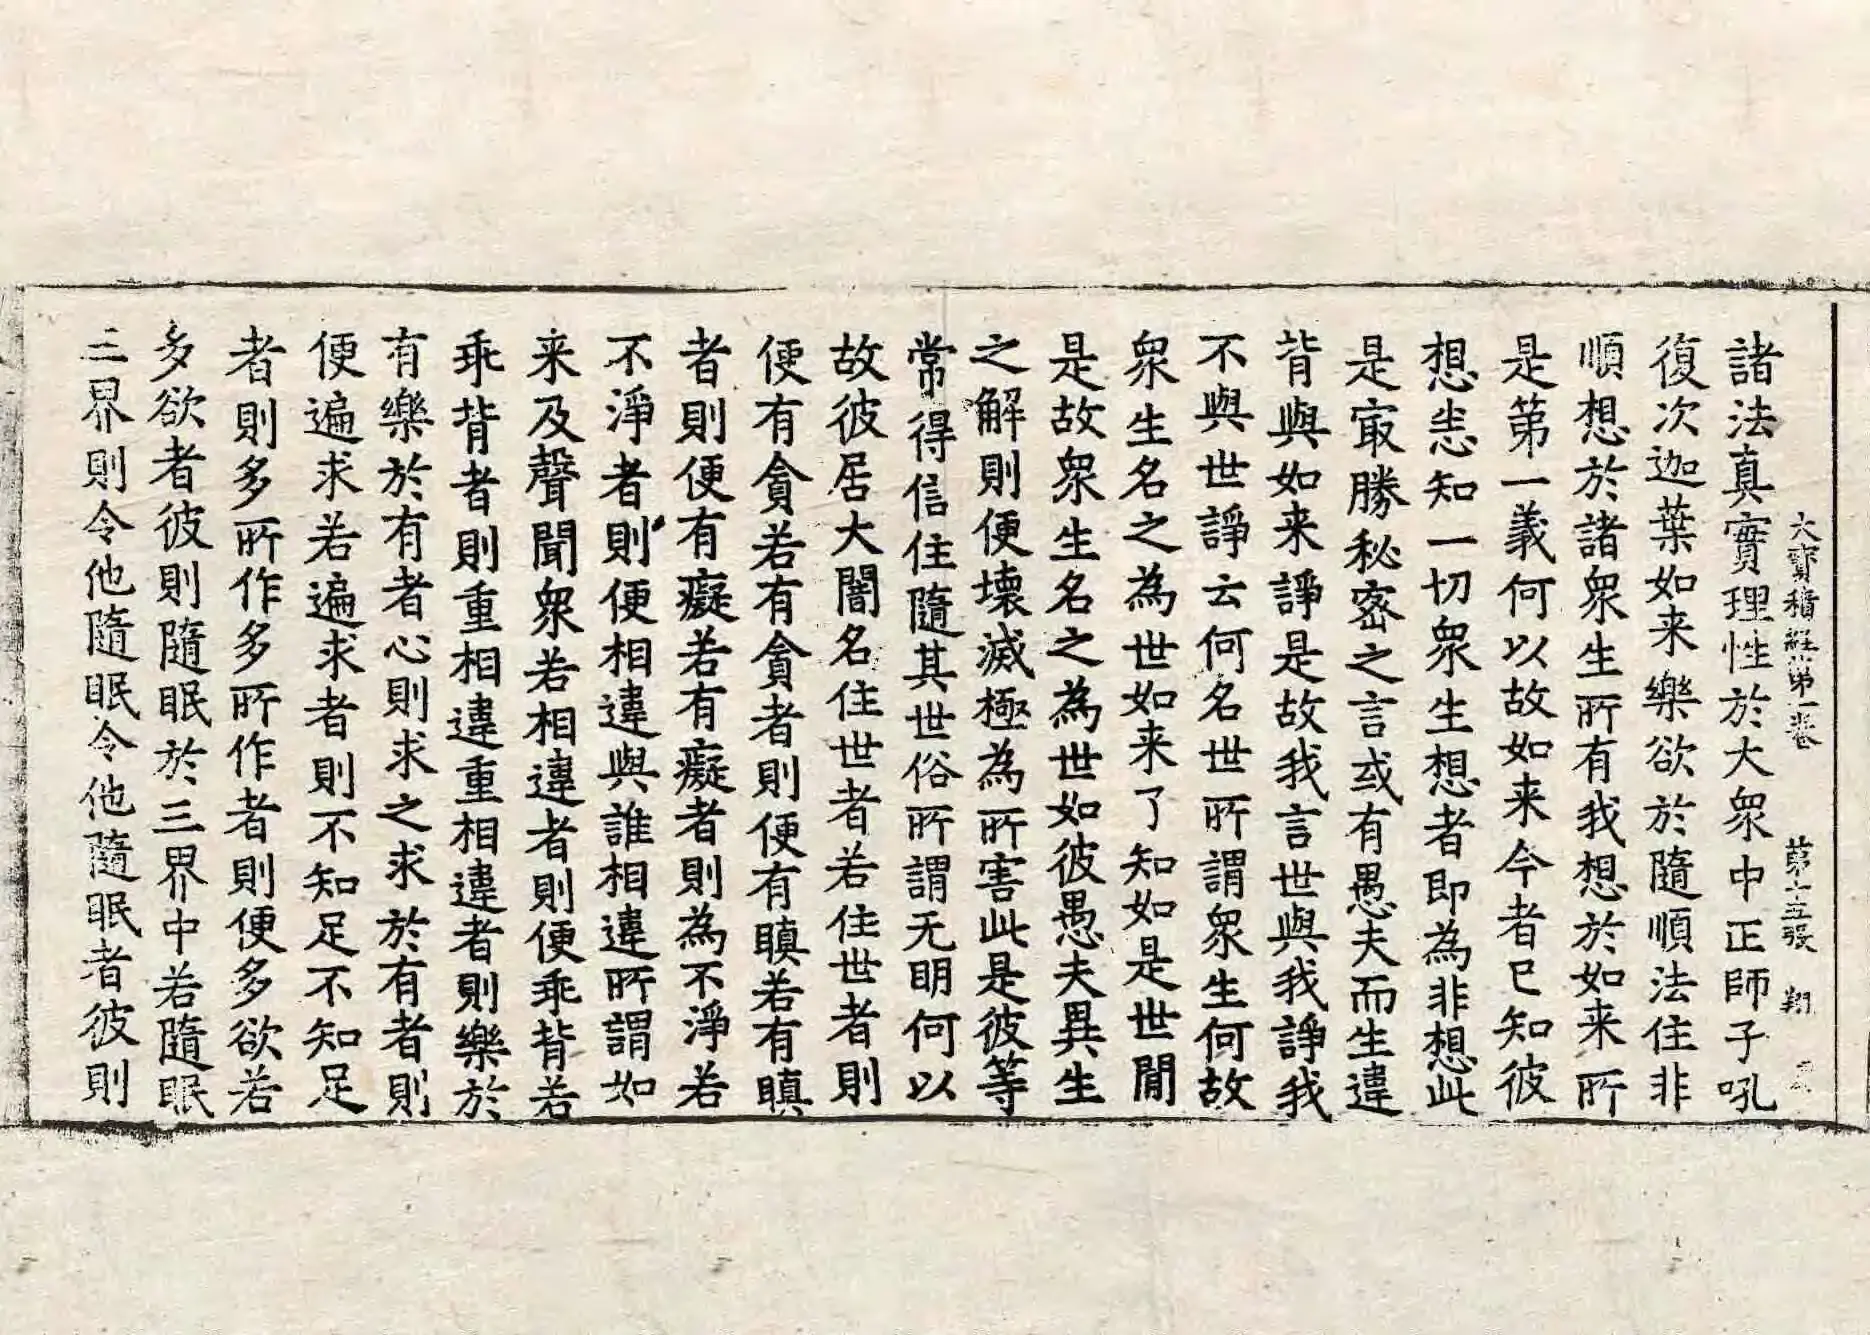 大寶積經第一卷 第十五張 翔
諸法真實理性於大衆中正師子吼
復次迦葉如来樂欲於隨順法住非
順想於諸衆生所有我想於如来所
是第一義何以故如来今者已知彼
想悉知一切衆生想者即為非想此
是㝡勝秘密之言或有愚夫而生違
背與如来諍是故我言世與我諍我
不與世諍云何名世所謂衆生何故
衆生名之為世如来了知如是世閒
是故衆生名之為世如彼愚夫異生
之解則便壞滅極為所害此是彼等
常得信住隨其世俗所謂无明何以
故彼居大闇名住世者若住世者則
便有貪若有貪者則便有瞋若有瞋
者則便有癡若有癡者則為不淨若
不淨者則便相違與誰相違所謂如
来及聲聞衆若相違者則便乖背若
乖背者則重相違重相違者則樂於
有樂於有者心則求之求於有者則
便遍求若遍求者則不知足不知足
者則多所作多所作者則便多欲若
多欲者彼則隨眠於三界中若隨眠
三界則令他隨眠令他隨眠者彼則